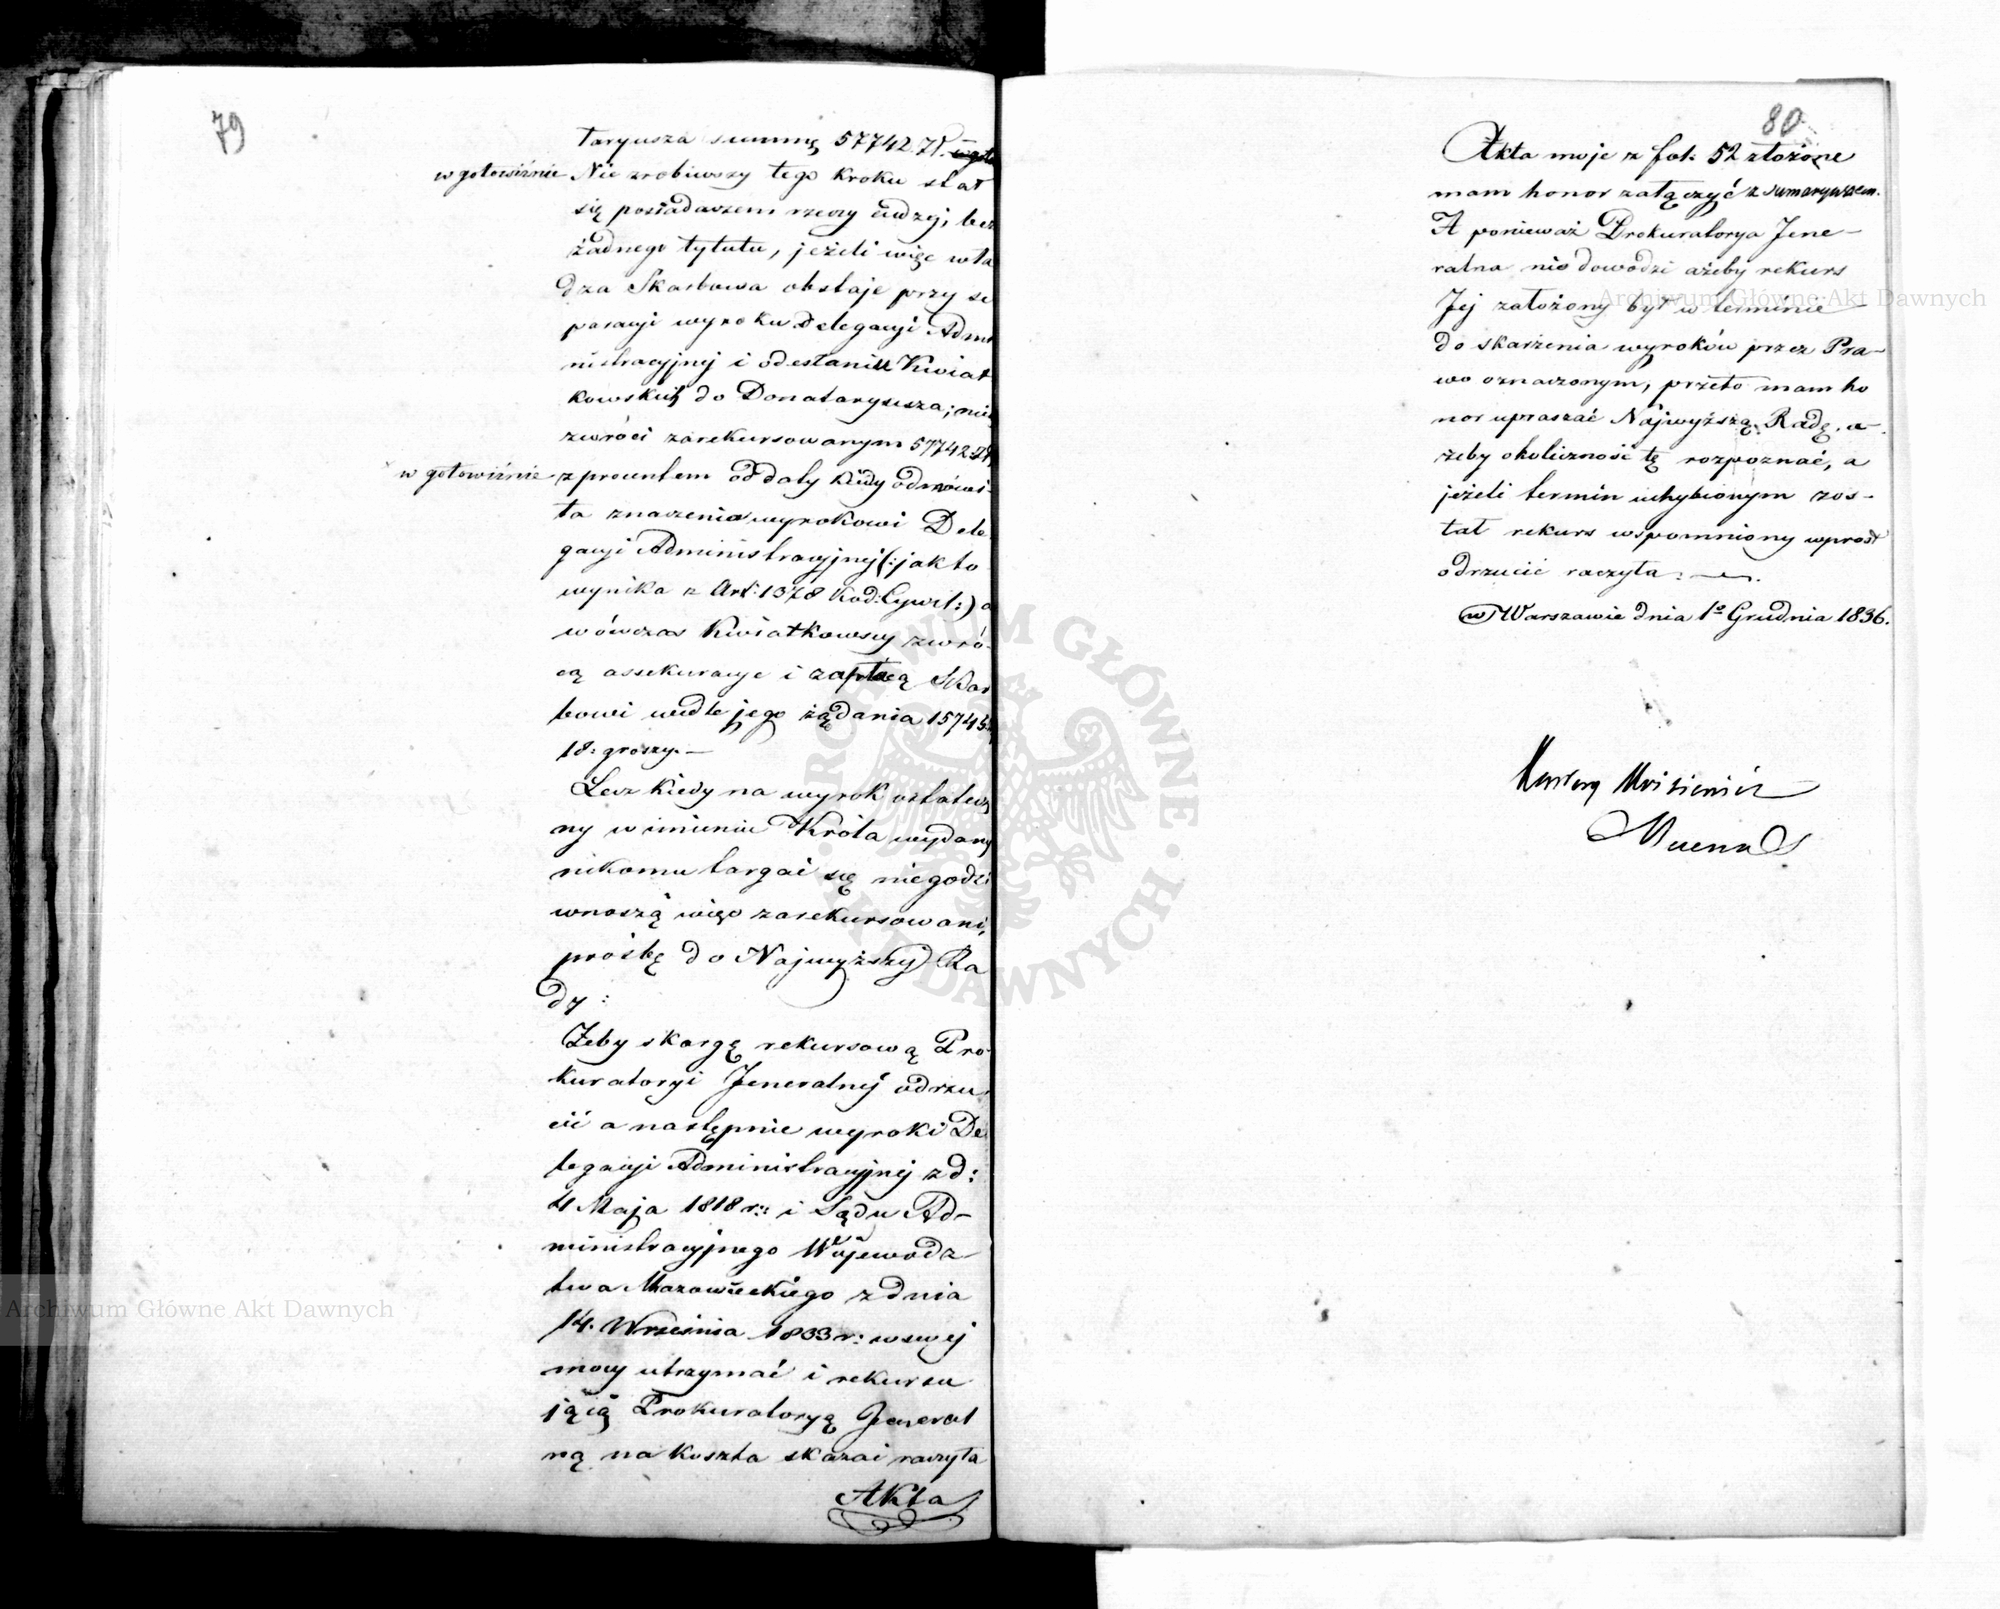 79
taryusza summę 57742 Zł.
w gotowiźnie Nie zrobiwszy tego kroku stał
się posiadaczem rzeczy cudzej, bez
żadnego tytułu, jeżeli więc wła
dza Skarbowa obstaje przy se
paracyi wyroku Delegacyi Admi
nistracyjnej i odesłaniu Kwiat
kowskich do Donataryusza; niech
zwróci zarekursowanym 57742 Zł.
w gotowiźnie z procentem od daty kiedy odmówi-
ła znaczenia wyrokowi Dele
gacyi Administracyjnej (:jak to
wynika z Art: 1378 Kod: Cywil:) a
wówczas Kwiatkowscy zwró-
cą assekuracye i zapłacą Skar
bowi wedle jego żądania 15743
18: groszy.—
Lecz kiedy na wyrok ostatecz
ny w imieniu Króla wydany
nikomu targać się niegodzi
wnoszą więc zarekursowani,
prośbę do Najwyższej Ra
dy:
Żeby skargę rekursową Pro
kuratoryi Jeneralnej odrzu
cić a następnie wyroki De
legacyi Administracyjnej z d:
4 Maja 1818 r.: i Sądu Ad-
ministracyjnego Wojewodz-
twa Mazowieckiego z dnia
14. Września 1833 r: w swej
mocy utrzymać i rekursu
jącą Prokuratoryą Jeneral
ną na koszta skazać raczyła
Akta
80
Akta moje z fol: 52 złożone
mam honor załączyć z sumaryuszem.
A ponieważ Prokuratorya Jene-
ralna nie dowodzi ażeby rekurs
Jej założony był w terminie
do skarżenia wyroków przez Pra-
wo oznaczonym, przeto mam ho
nor upraszać Najwyższą Radę, a-
żeby okoliczność tę rozpoznać, a
jeżeli termin uchybionym zos-
tał rekurs wspomniony wprost
odrzucić raczyła:
w Warszawie dnia 1º Grudnia 1836.
Archiwum Główne Akt Dawnych
Archiwum Główne Akt Dawnych
ARCHIWUM GŁÓWNE AKT DAWNYCH